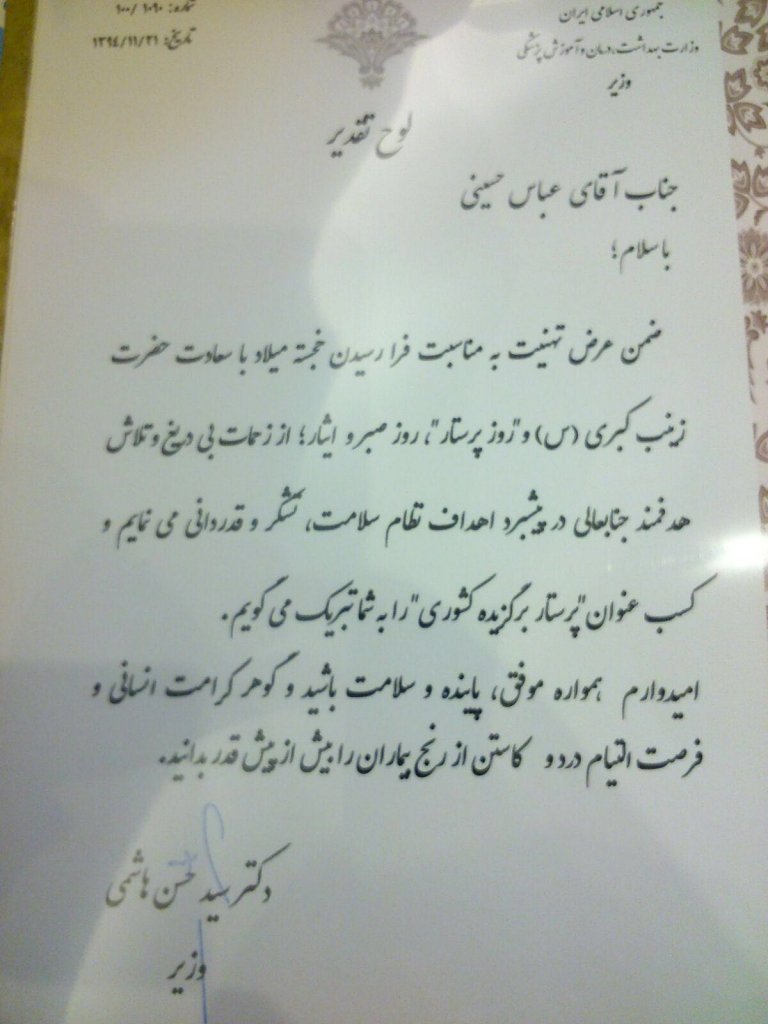 جمهوری اسلامی ایران
وزارت بهداشت، درمان و آموزش پزشکی
وزیر
شماره: ۱۰۹۰ /۱۰۰
تاریخ: ۱۳۹٤/۱۱/۲۱
لوح تقدیر
جناب آقای عباس حسینی
با سلام؛
ضمن عرض تهنیت به مناسبت فرا رسیدن خجسته میلاد با سعادت حضرت
زینب کبری (س) و "روز پرستار"، روز صبر و ایثار؛ از زحمات بی دریغ و تلاش
هدفمند جنابعالی در پیشبرد اهداف نظام سلامت، تشکر و قدردانی می نمایم و
کسب عنوان "پرستار برگزیده کشوری" را به شما تبریک می گویم.
امیدوارم همواره موفق، پاینده و سلامت باشید و گوهر کرامت انسانی و
فرصت التیام درد و کاستن از رنج بیماران را بیش از پیش قدر بدانید.
دکتر سید حسن هاشمی
وزیر